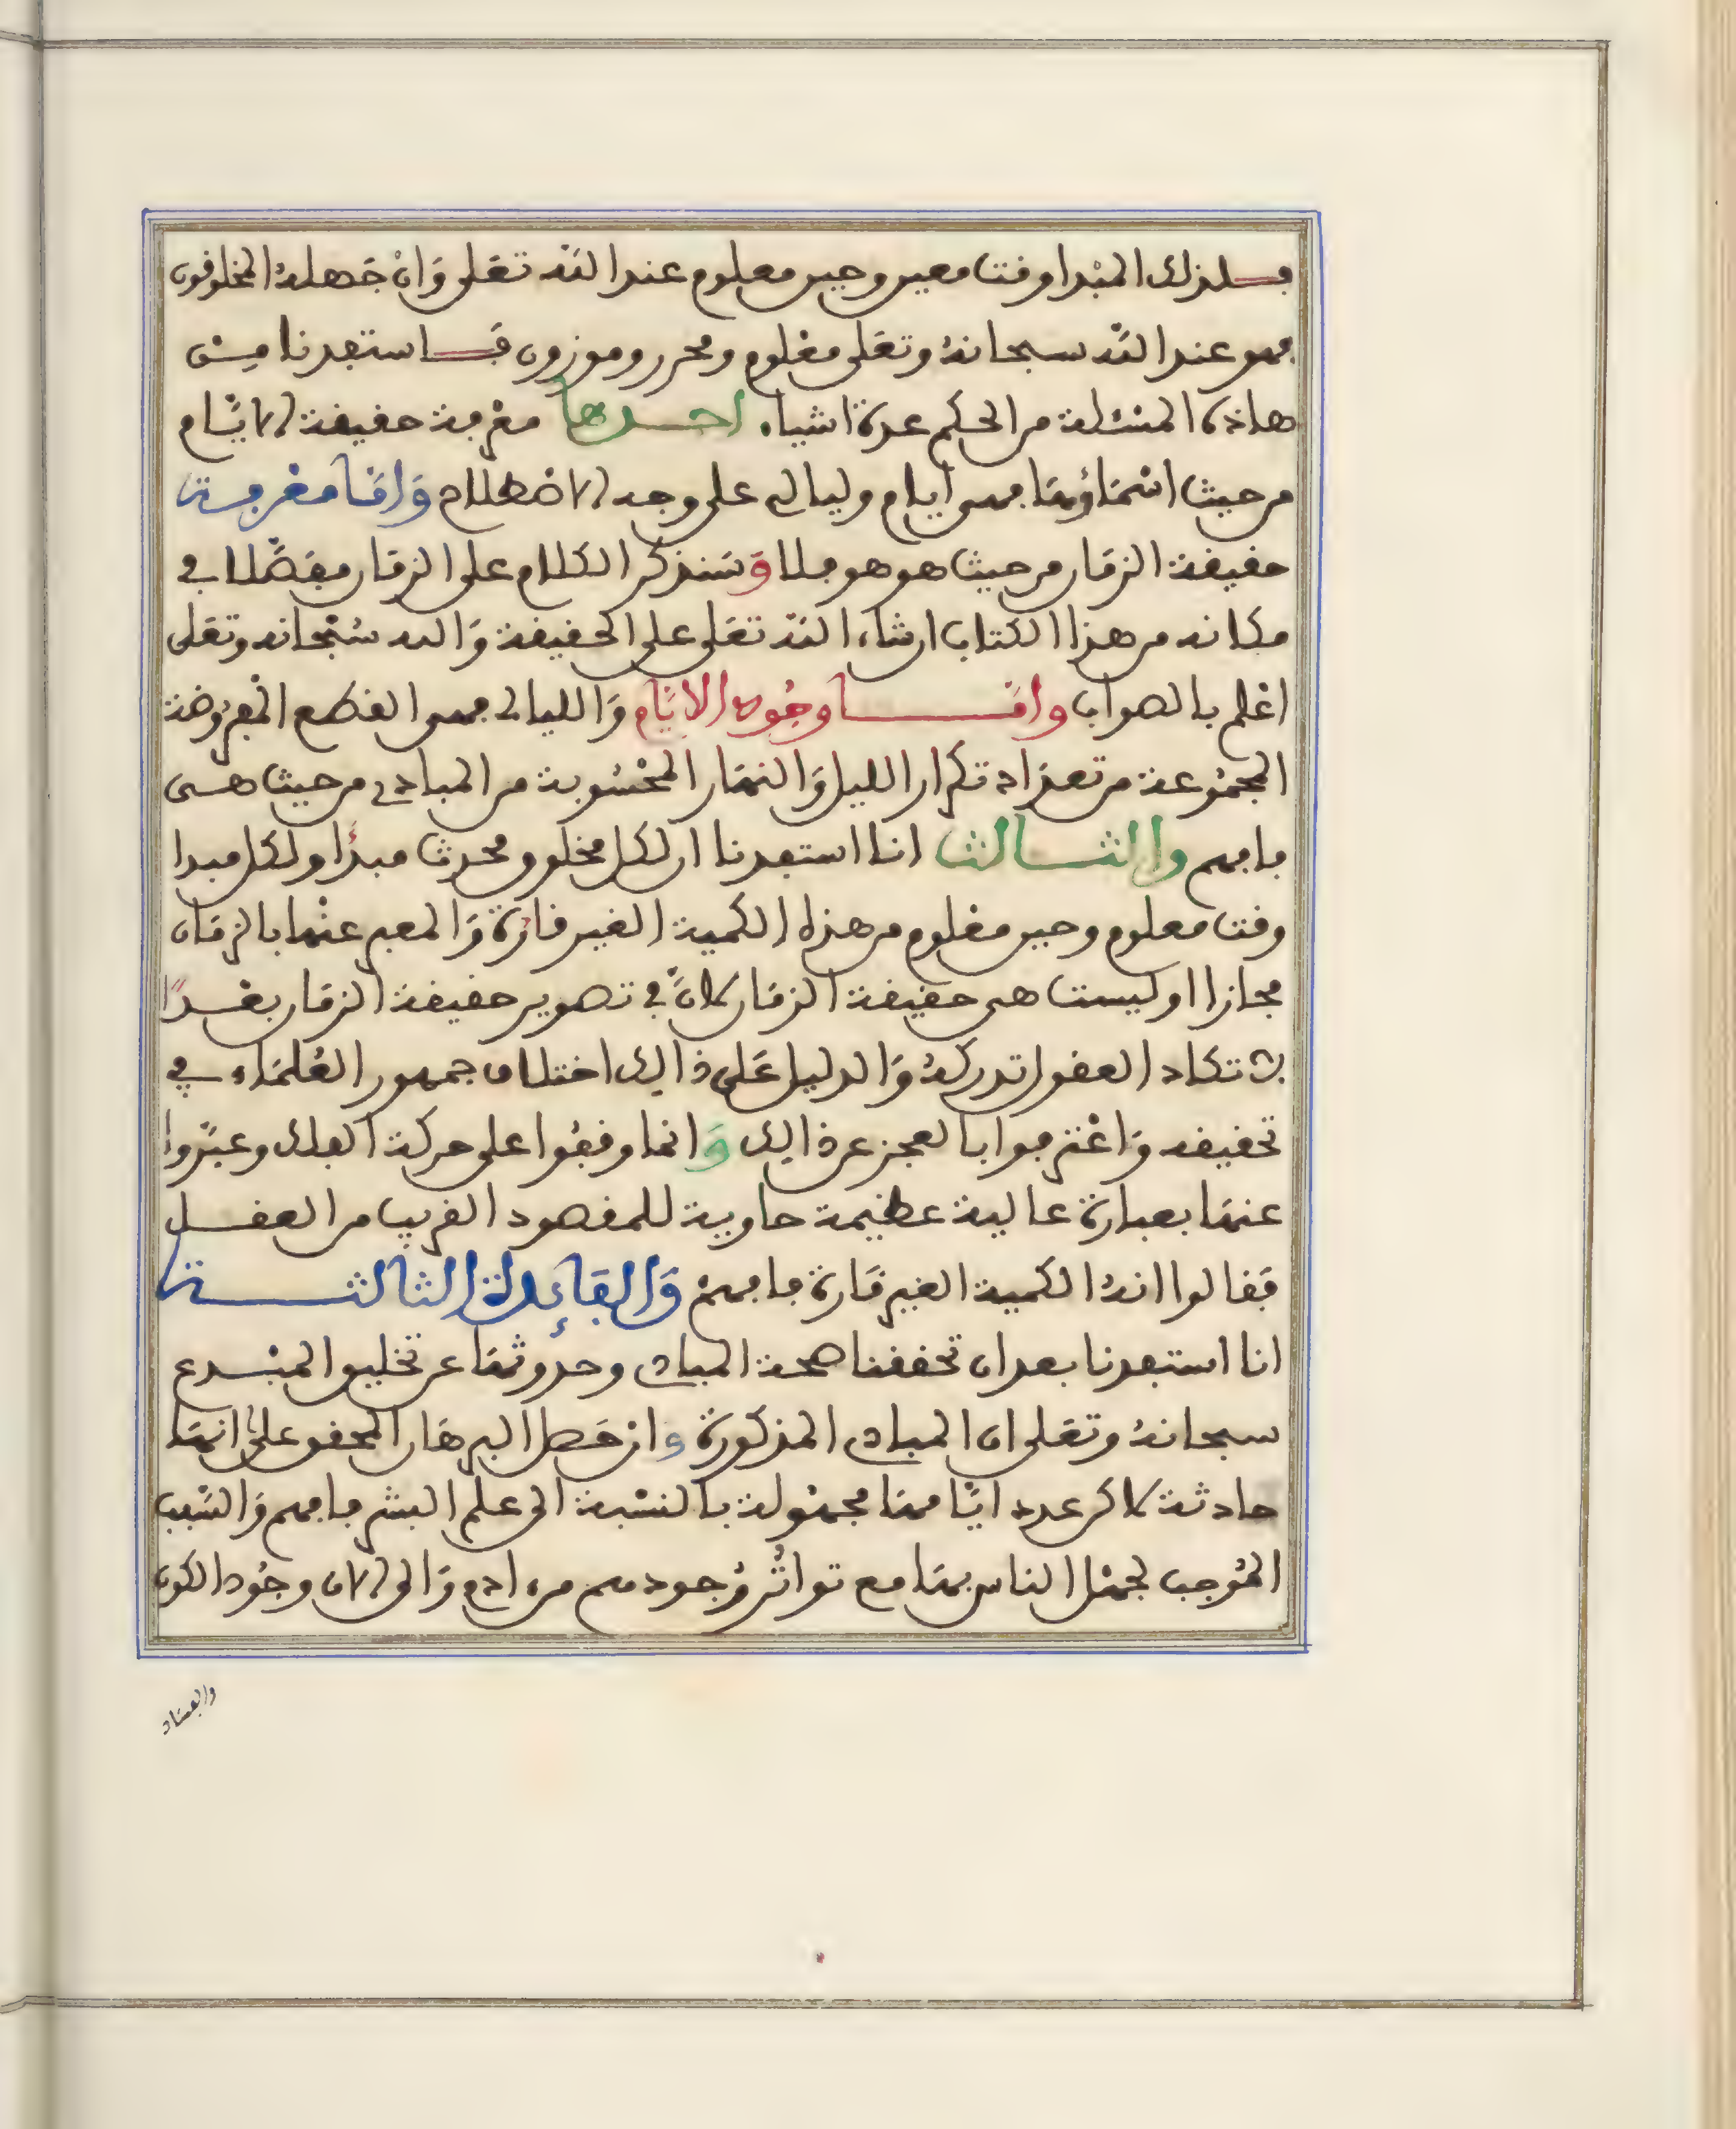 فلذلك المبدا وقت معين وحين معلوم عند الله تعلى وَانْ جَهله المخلوقون
فهو عند الله سبحانهُ وتعلى معْلوم ومحرر وموزون فَاستفدنا مِن
هاذه المسْئلة من الحكم عدة اشياء احدها معْرفة حقيقة الايَّام
من حيث اسْمَاؤهَا فهي ايام وليالي على وجه الاصْطلاح وَامَّا معْرفة
حقيقة الزمَان من حيث هو هو فلا وَسَنذكر الكلام على الزمَان مفَصَّلا في
مكانه من هذا الكتاب ان شاء الله تعَلى على الحقيقة وَالله سُبْحانه وتعَلى
اعْلم بالصواب وامَّا وجُود الايَّام وَالليالي فهي القطع المْفرُوضة
المجمُوعة من تعدَاد تكرار الليل وَالنهَار المحْسُوبة من المبادي من حيث هي
فافهم والثالث انا استفدنا ان لكل مخلوق ومحدث مبدَأ ولكل مبدا
وقت معلوم وحين معْلوم من هذه الكمية الغير قارَة وَالمعبر عنْها بالزمَان
مجازا اوليست هي حقيقة الزمَان لانَّ في تصوير حقيقة الزمَان بعْدًا
لا تكاد العقول تدركهُ وَالدليل عَلى ذالك اختلاف جمهور العُلمَاء في
تحقيقه وَاعْترفوا بالعجز عن ذالك وَانما وقفُوا على حركة الفلك وعبَّروا
عنهَا بعبارة عالية عظيمة حاوية للمقصود القريب من العقل
فَقالوا انهُ الكمية الغير قَارة فافهمْ وَالفَائدة الثالثة
انا استفدنا بعد ان تحققنا صحة المباد وحدوثهَا عن تخليق المبْدع
سبحانهُ وتعَلى ان المباد المذكورة وان حَصل البرهَان المحقق على انهَا
حادثة لاكن عدد ايَّامهَا مجهُولة بالنسْبة الى علم البشر فافهم وَالسَّبب
المُوجب لجهْل الناس بهَا مع تواتُر وُجودهم من ادم وَالى الان وجُود الكون
والفسَاد